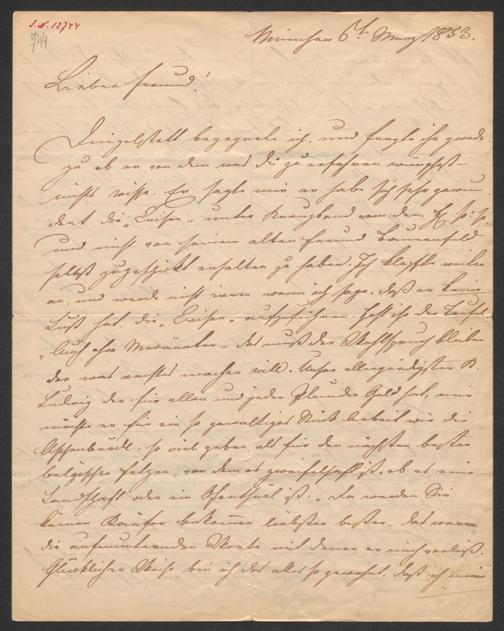 J.N. 12744
744
München 6t März 1853.
Lieber Freund!
Dingelstett begegnete ich, und fragte ihn grade
zu ob er von dem was du zu erfahren wünschst
nichts wisse. Er sagte mir er habe sich sehr gewun
dert die unter Kreuzband von dem
und nicht von seinem alten Freund Bauernfeld
selbst zugeschickt erhalten zu haben. Ich klopfte weiter
an, und werde nicht irren wenn ich sage, daß er keine
Lust hat, die aufzuführen. Hohl ihn der Teufel
"Auch ohne das muß der Wahlspruch bleiben
der was rechtes machen will. Unser allergnädigster K
Ludwig der für allen und jeden Plunder Geld hat, mein
möchte er für ein so gewaltiges Stück Arbeit wie die
Aschenbrödl, so viel geben als für den nächsten besten
belgischen Fetzen, von dem es zweifelhaft ist, ob es eine
Landschaft oder ein ist. "Da werden Sie
keinen Käufer bekommen liebster bester. das waren
die aufmunternden Worte mit denen er mich verließ.
Glücklicher Weise bin ich das alles so gewohnt, daß ich meine